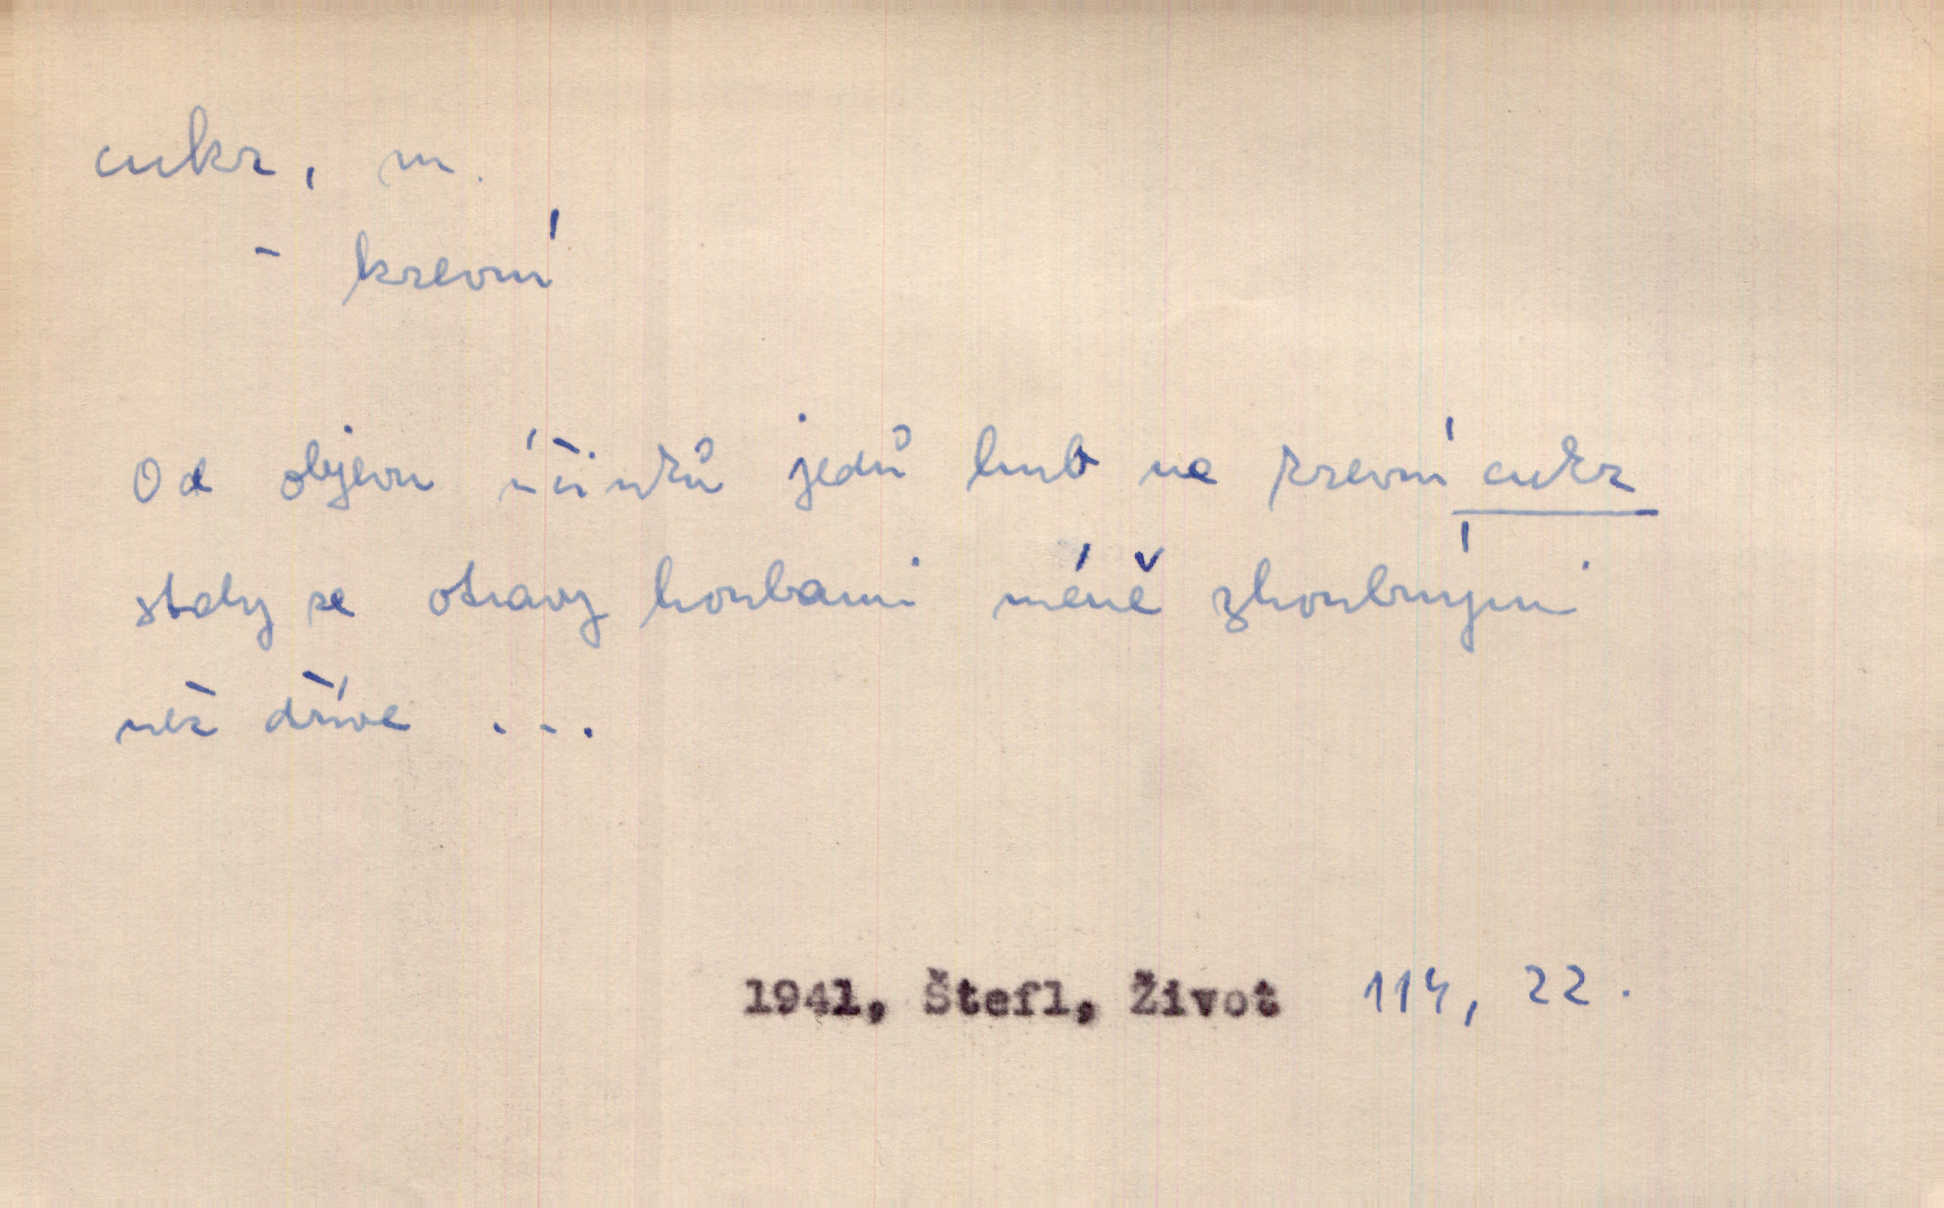 cukr, m.
- krevní
Od objevu účinků jedů hub na krevní cukr
staly se otravy houbami méně zhoubnými
než dříve ...
1941, Štefl, Život 114, 22.